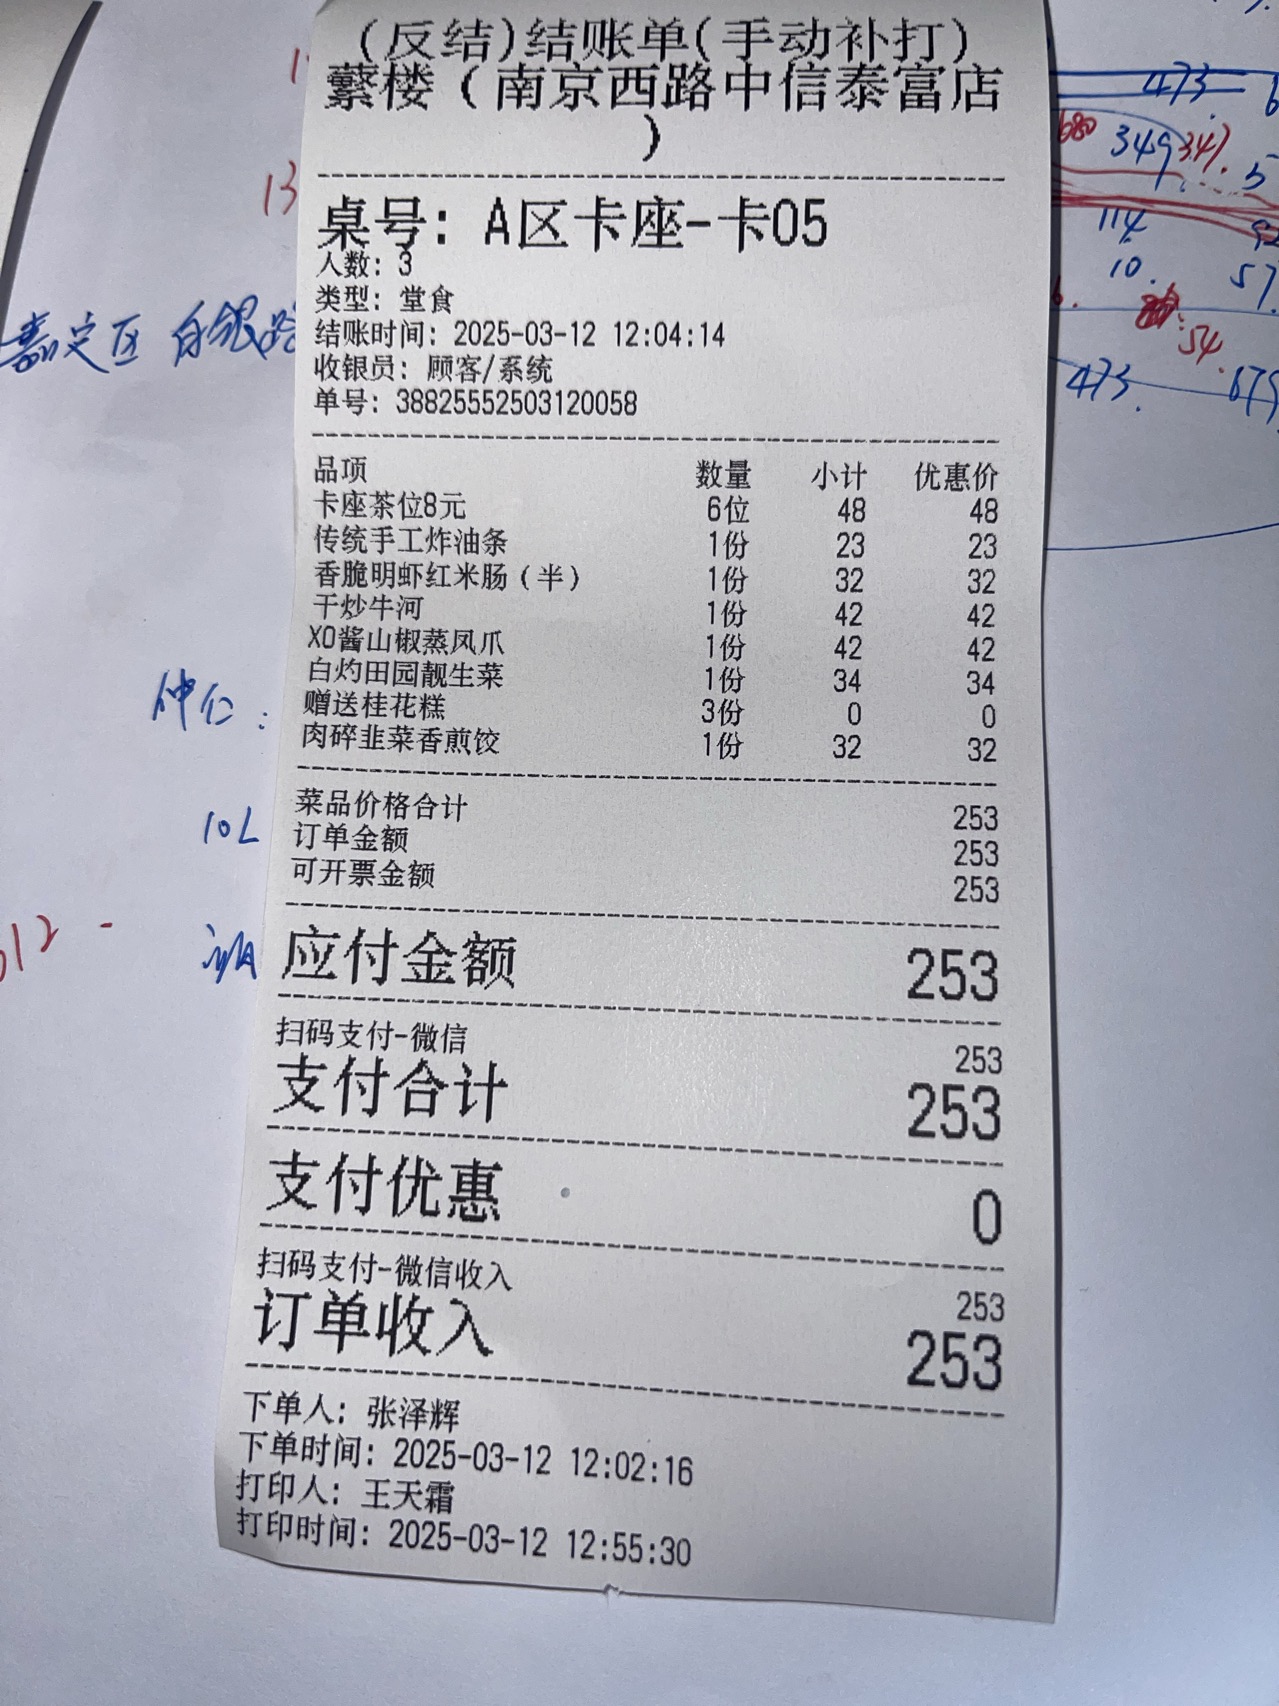 (反结)结账单(手动补打)
蘩楼（南京西路中信泰富店
）
桌号: A区卡座-卡05
人数: 3
类型: 堂食
结账时间: 2025-03-12 12:04:14
收银员: 顾客/系统
单号: 38825552503120058
品项 数量 小计 优惠价
卡座茶位8元 6位 48 48
传统手工炸油条 1份 23 23
香脆明虾红米肠（半） 1份 32 32
干炒牛河 1份 42 42
XO酱山椒蒸凤爪 1份 42 42
白灼田园靓生菜 1份 34 34
赠送桂花糕 3份 0 0
肉碎韭菜香煎饺 1份 32 32
菜品价格合计 253
订单金额 253
可开票金额 253
应付金额 253
扫码支付-微信 253
支付合计 253
支付优惠 0
扫码支付-微信收入 253
订单收入 253
下单人: 张泽辉
下单时间: 2025-03-12 12:02:16
打印人: 王天霜
打印时间: 2025-03-12 12:55:30
13
嘉定区 白银路
仲仁:
10L
473
680 349 347.
114
10.
57.
54.
473. 679